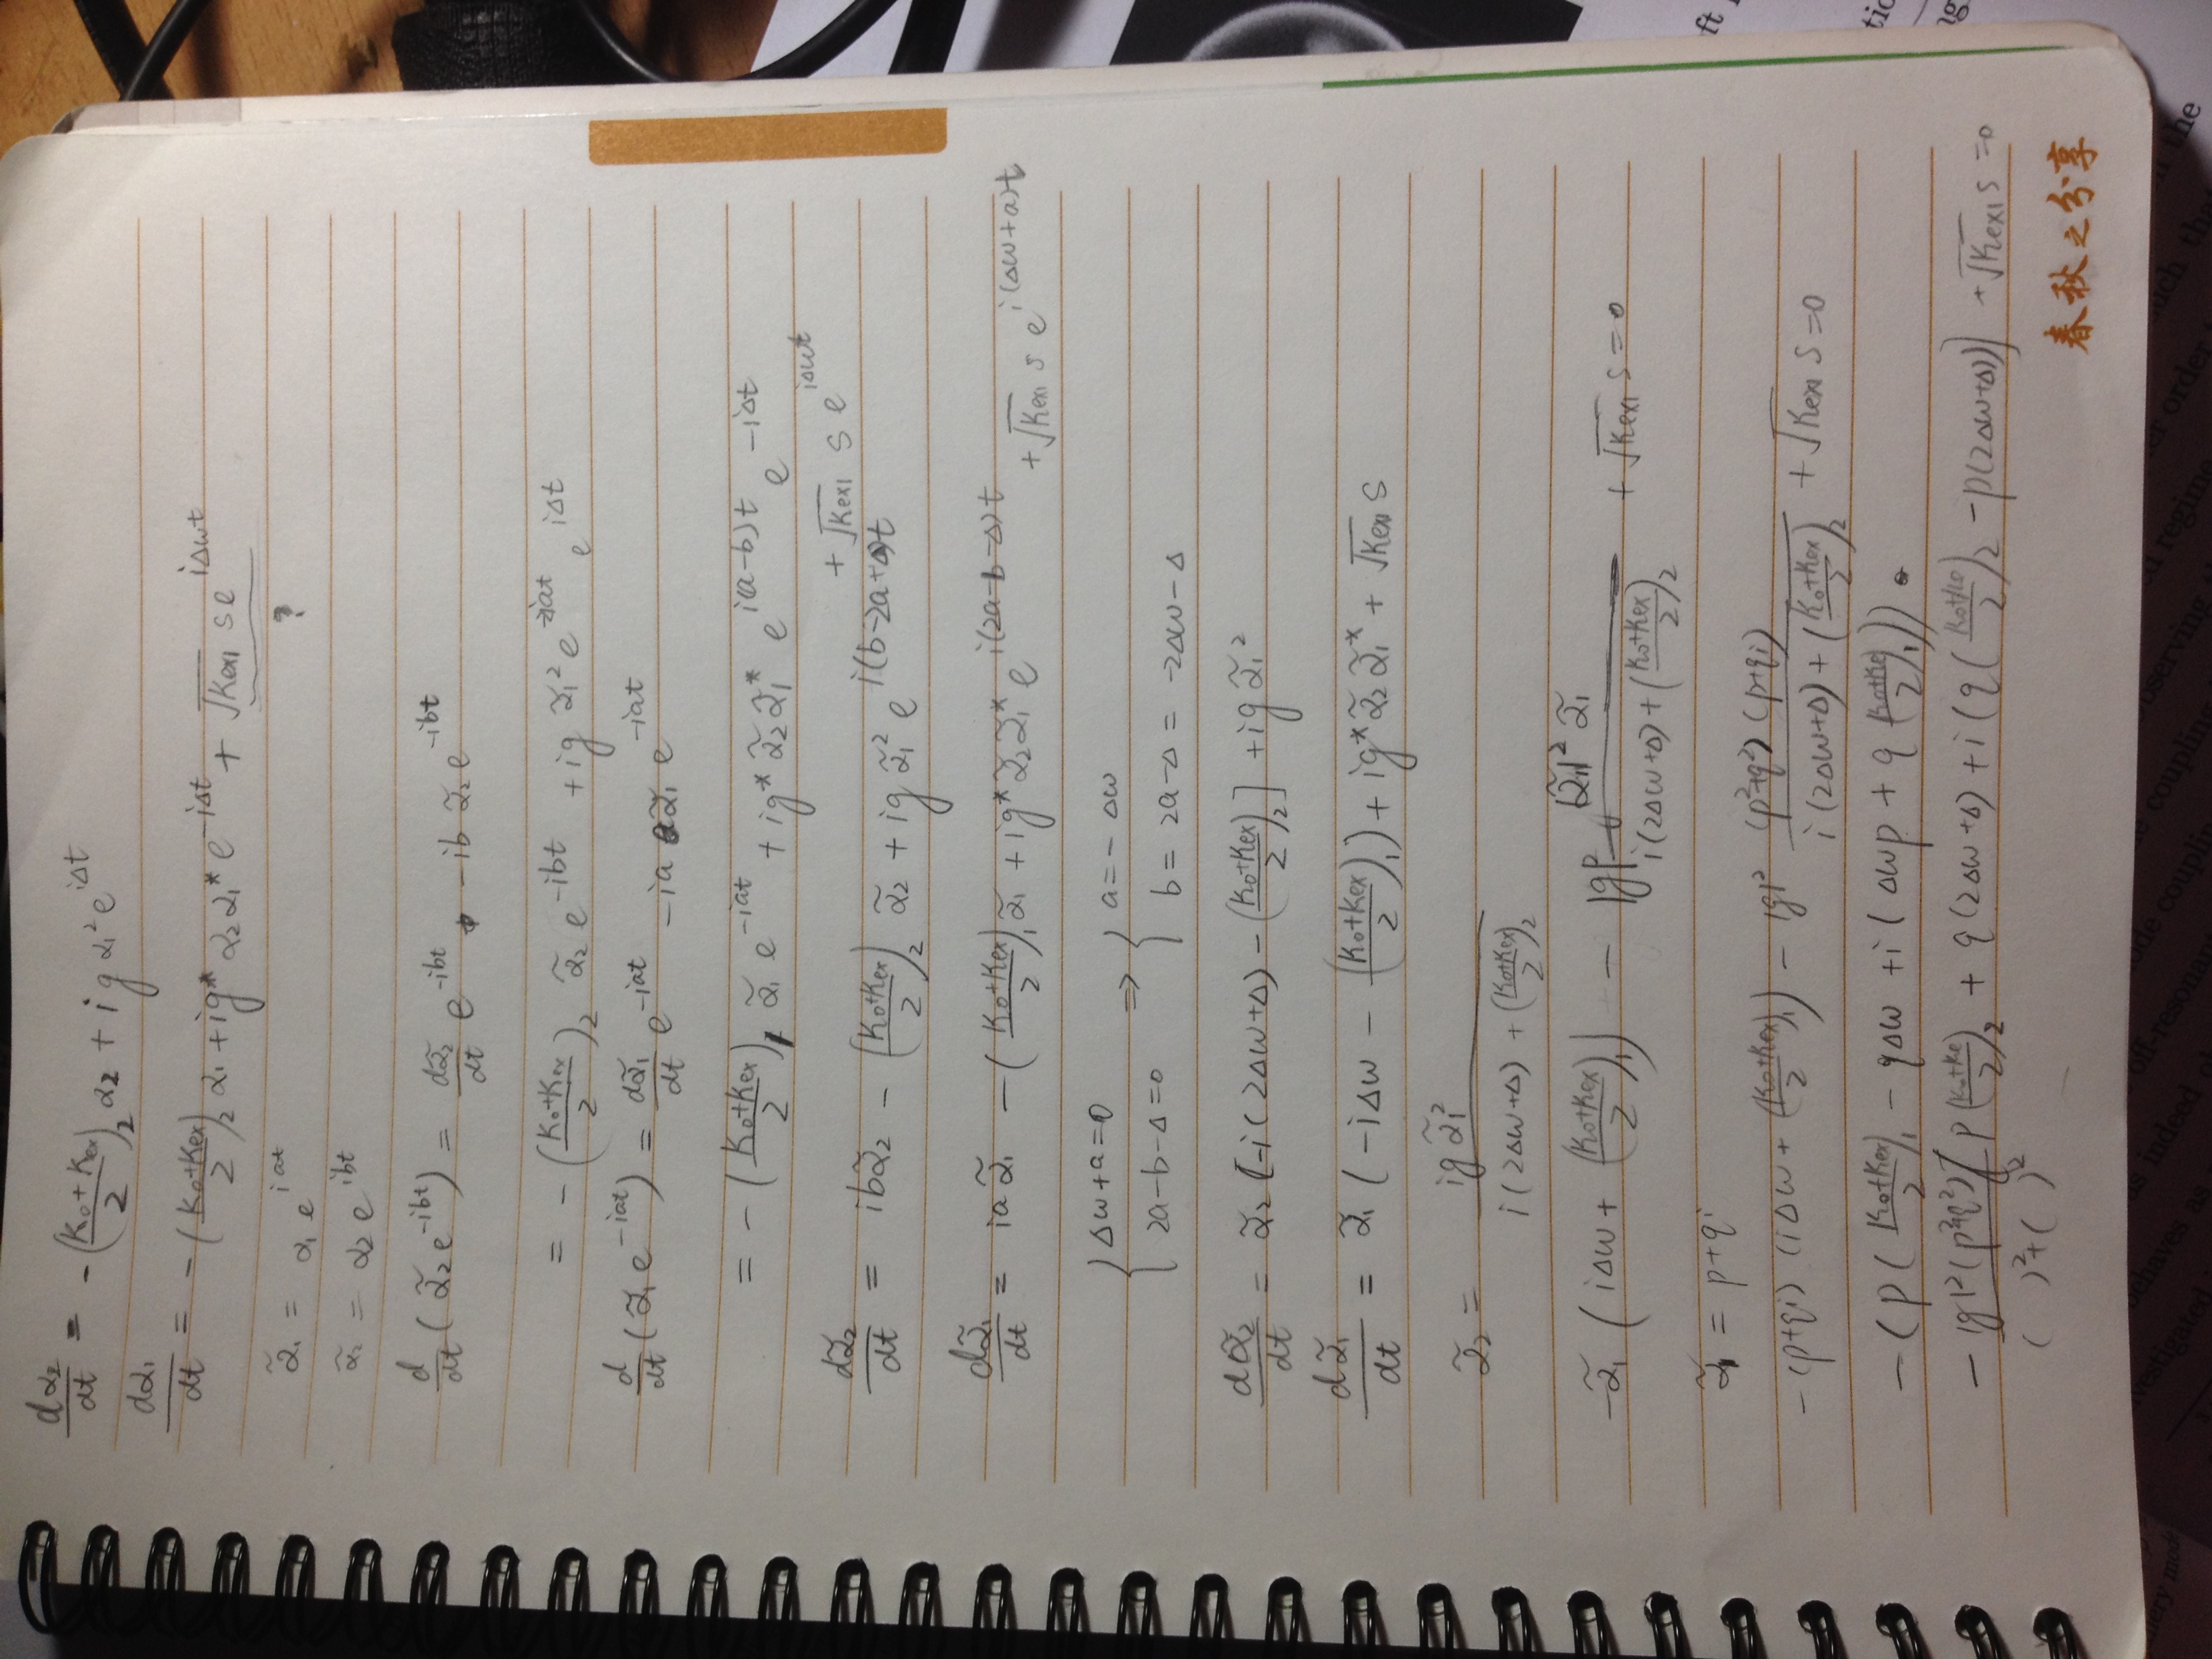 dα₂/dt = -((K₀+Kex)/2)₂ α₂ + i g α₁² e^{iΔt}
dα₁/dt = -((K₀+Kex)/2)₂ α₁ + ig* α₂α₁* e^{-iΔt} + √Kex1 s e^{iΔωt}
?
α̃₁ = α₁ e^{iat}
α̃₂ = α₂ e^{ibt}
d/dt (α̃₂ e^{-ibt}) = dα̃₂/dt e^{-ibt} - ib α̃₂ e^{-ibt}
= -((K₀+Kex)/2)₂ α̃₂ e^{-ibt} + ig α̃₁² e^{-2iat} e^{iΔt}
d/dt (α̃₁ e^{-iat}) = dα̃₁/dt e^{-iat} - ia α̃₁ e^{-iat}
= -((K₀+Kex)/2)₁ α̃₁ e^{-iat} + ig* α̃₂α̃₁* e^{i(a-b)t} e^{-iΔt}
+ √Kex1 s e^{iΔωt}
dα̃₂/dt = ibα̃₂ - ((K₀+Kex)/2)₂ α̃₂ + ig α̃₁² e^{i(b-2a+Δ)t}
dα̃₁/dt = ia α̃₁ - ((K₀+Kex)/2)₁ α̃₁ + ig* α̃₂α̃₁* e^{i(2a-b-Δ)t} + √Kex1 s e^{i(Δω+a)t}
{ Δω+a=0 ⇒ { a = -Δω
2a-b-Δ=0 b = 2a-Δ = -2Δω-Δ
dα̃₂/dt = α̃₂ [-i(2Δω+Δ) - ((K₀+Kex)/2)₂] + ig α̃₁²
dα̃₁/dt = α̃₁ (-iΔω - ((K₀+Kex)/2)₁) + ig* α̃₂ α̃₁* + √Kex1 s
α̃₂ = ig α̃₁² / (i(2Δω+Δ) + ((K₀+Kex)/2)₂)
-α̃₁ (iΔω + ((K₀+Kex)/2)₁) - |g|² |α̃₁|² α̃₁ / (i(2Δω+Δ) + ((K₀+Kex)/2)₂) + √Kex1 s = 0
α̃₁ = p+qi
-(p+qi) (iΔω + ((K₀+Kex)/2)₁) - |g|² (p²+q²)(p+qi) / (i(2Δω+Δ) + ((K₀+Kex)/2)₂) + √Kex1 s = 0
-(p((K₀+Kex)/2)₁ - qΔω + i(Δωp + q((K₀+Ke)/2)₁))
- |g|²(p²+q²)[p((K₀+Ke)/2)₂ + q(2Δω+Δ) + i(q((K₀+Ke)/2)₂ - p(2Δω+Δ))] / ( )²+( )² + √Kex1 s = 0
春秋之分享
ft
tic
ng
the